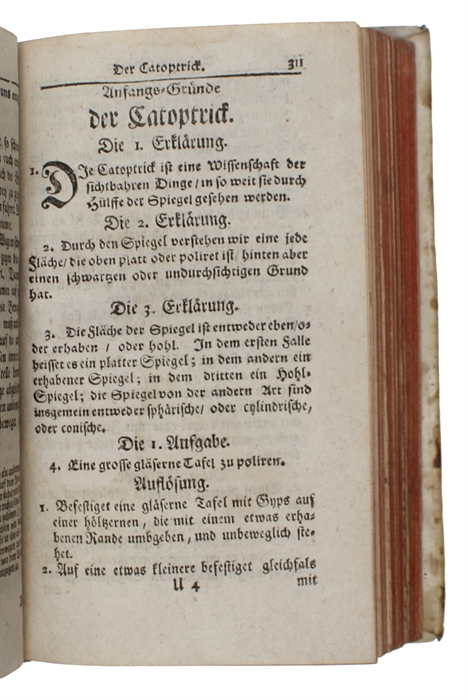 Der Catoptrick. 311
Anfangs-Gründe
der Catoptrick.
Die 1. Erklärung.
1. DJe Catoptrick ist eine Wissenschaft der
sichtbahren Dinge / in so weit sie durch
Hülffe der Spiegel gesehen werden.
Die 2. Erklärung.
2. Durch den Spiegel verstehen wir eine jede
Fläche / die oben platt oder poliret ist / hinten aber
einen schwartzen oder undurchsichtigen Grund
hat.
Die 3. Erklärung.
3. Die Fläche der Spiegel ist entweder eben / o-
der erhaben / oder hohl. In dem ersten Falle
heisset es ein platter Spiegel; in dem andern ein
erhabener Spiegel; in dem dritten ein Hohl-
Spiegel; die Spiegel von der andern Art sind
insgemein entweder sphärische / oder cylindrische,
oder conische.
Die 1. Aufgabe.
4. Eine grosse gläserne Tafel zu poliren.
Auflösung.
1. Befestiget eine gläserne Tafel mit Gyps auf
einer höltzernen, die mit einem etwas erha-
benen Rande umbgeben, und unbeweglich ste-
het.
2. Auf eine etwas kleinere befestiget gleichfals
U 4 mit